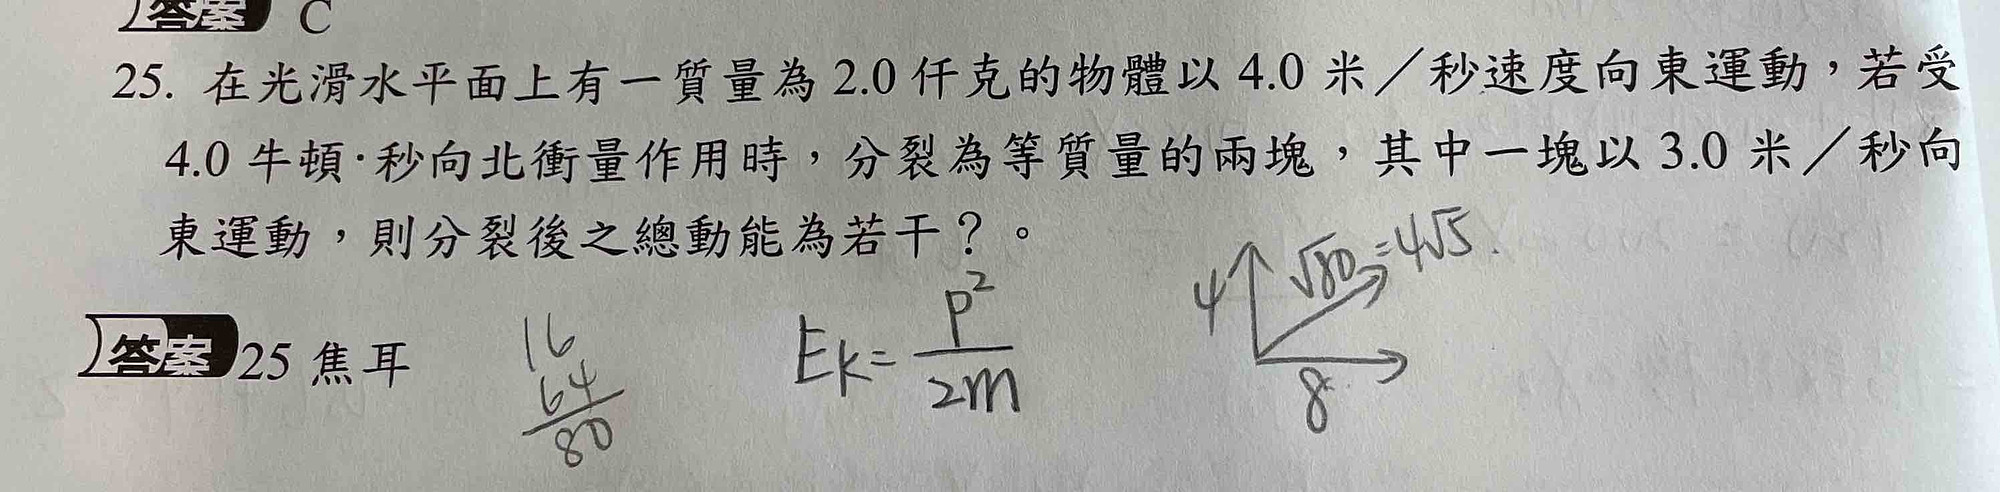 答案 C
25. 在光滑水平面上有一質量為 2.0 仟克的物體以 4.0 米／秒速度向東運動，若受
4.0 牛頓·秒向北衝量作用時，分裂為等質量的兩塊，其中一塊以 3.0 米／秒向
東運動，則分裂後之總動能為若干？。
4 √80 = 4√5.
8
答案 25 焦耳
16
64
80
Ek = P²/2m